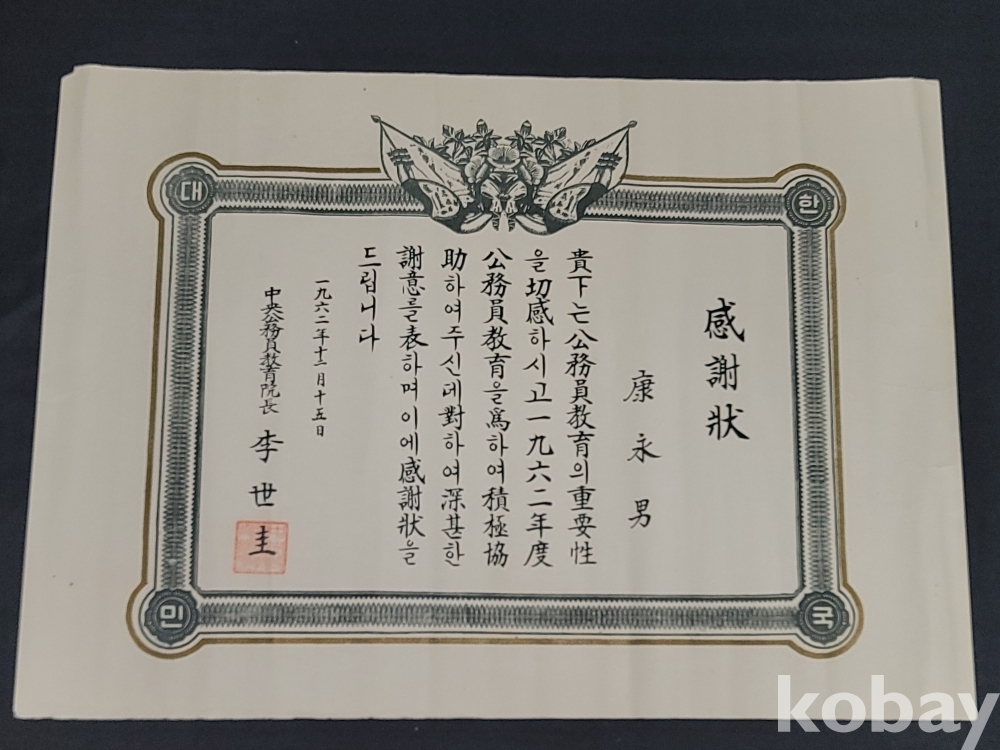 대
한
민
국
感謝狀
康永男
貴下는公務員敎育의重要性
을切感하시고一九六二年度
公務員敎育을爲하여積極協
助하여주신데對하여深甚한
謝意를表하며이에感謝狀을
드립니다
一九六二年十二月十五日
中央公務員敎育院長 李世圭
kobay